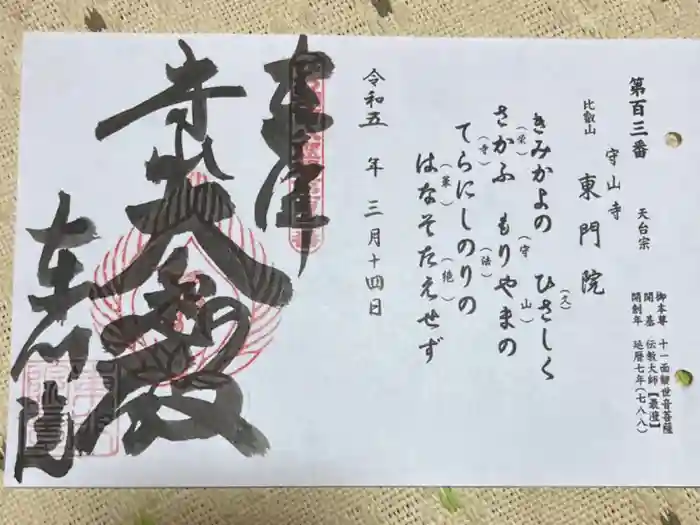 第百三番　天台宗
比叡山
守山寺
東門院
御本尊　十一面観世音菩薩
開基　伝教大師【最澄】
開創年　延暦七年(七八八)
きみかよの　ひさしく
(久)
(栄)　(守山)
さかふ　もりやまの
(寺)　(法)
てらにしのりの
(華)　(絶)
はなそたえせず
令和五年　三月十四日
奉拝
大
殿
東門院